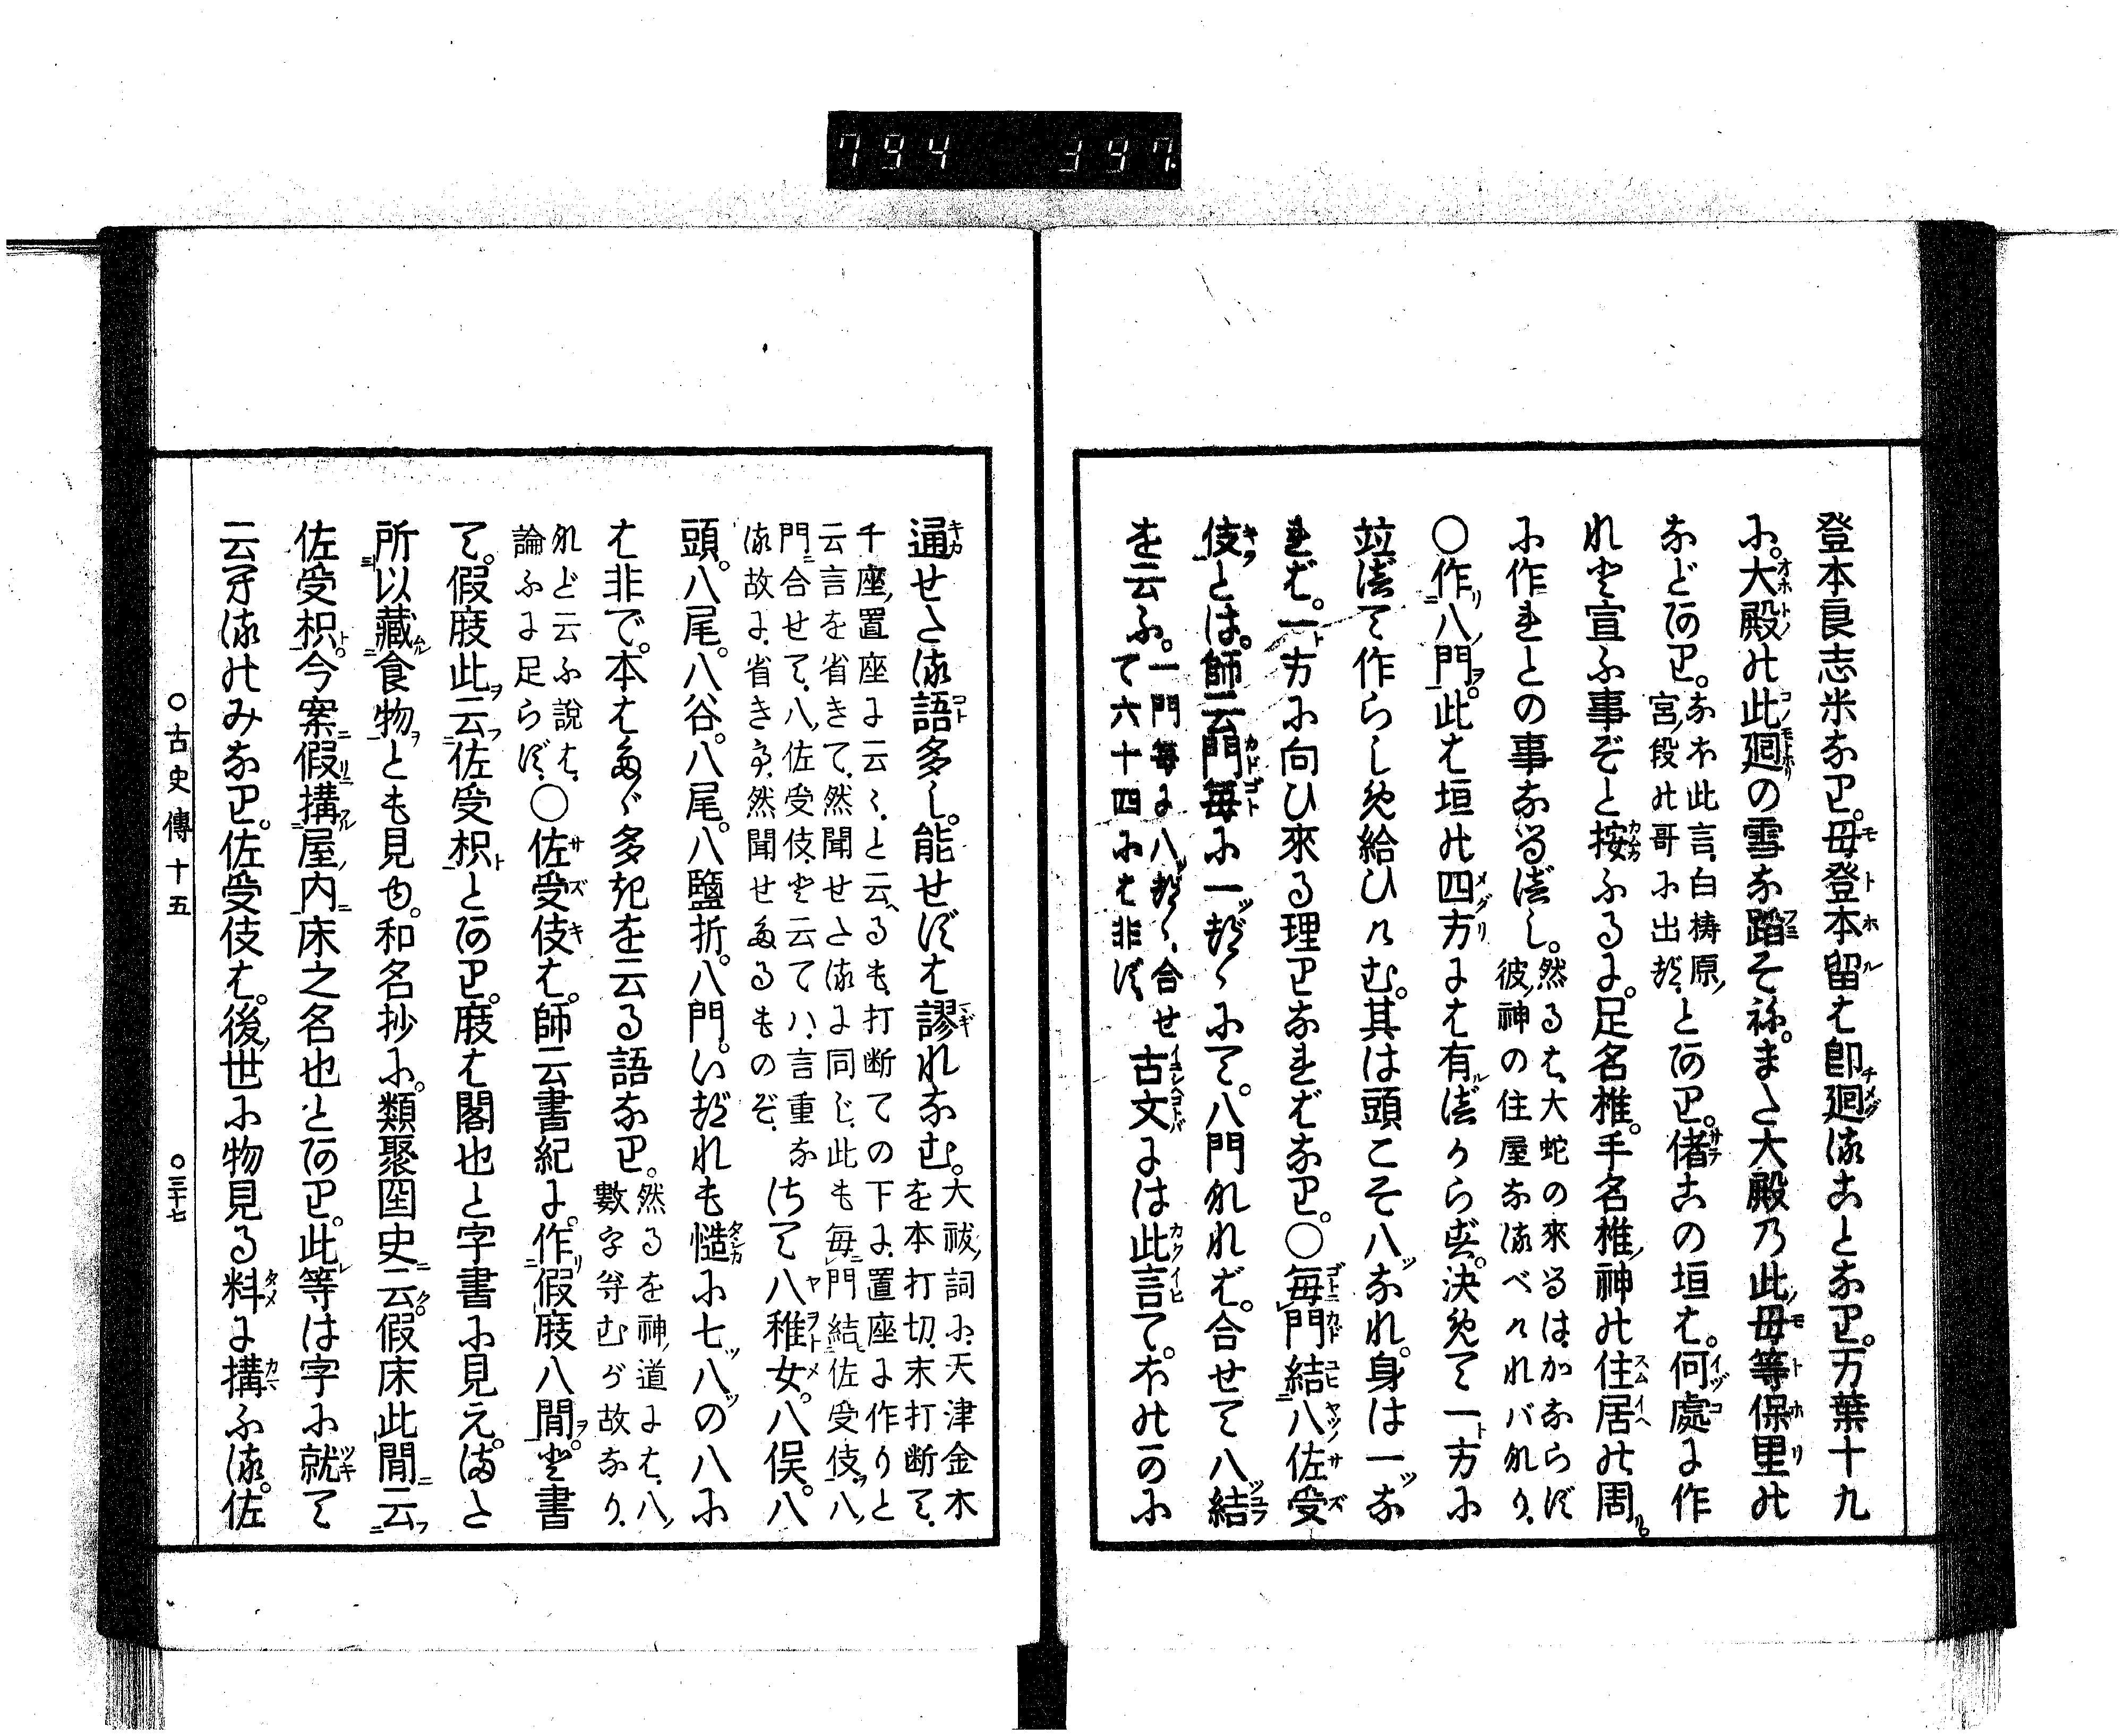 794 397
登本良志米なり。毋登本留は卽廻ることなり。万葉十九
に。大殿の此廻の雪な蹈そね。また大殿乃此毋等保里の
などあり。なほ此言、白檮原、
宮、段の哥に出づ、とあり。偖この垣は。何處に作
れと宣ふ事ぞと按ふるに。足名椎。手名椎神の住居の周
に作れとの事なるべし。然るは、大蛇の來るは、かならず
彼、神の住屋なるべければなり、
○作八門。此は垣の四方には有べからず。決めて一方に
竝べて作らしめ給ひけむ。其は頭こそ八なれ。身は一な
れば。一方に向ひ來る理りなればなり。○毎門結八佐受
伎とは。師云門毎に一づゝにて。八門なれば。合せて八結
を云ふ。一門毎に八づゝ、合せ
て六十四には非ず、古文には此言て。ホのに
通せたる語多し。能せずは謬れなむ。大祓、詞に、天津金木
を本打切、末打断て、
千座、置座に云〻、と云るも、打断ての下に、置座に作りと
云言を省きて、然聞せたるに同じ、此も毎門結佐受伎、八
門合せて、八佐受伎、と云ては、言重な
る故に、省きて、然聞せたるものぞ、はて八稚女。八俣。八
頭。八尾。八谷。八尾。八鹽折。八門。いづれも慥に七八の八に
は非で。本はたゞ多きを云る語なり。然るを神道には、八、
數字尊むが故なり、
など云ふ說は、
論ふに足らず、○佐受伎は。師云書紀に。作假庪八間。と書
て。假庪此云佐受枳とあり。庪は閣也と字書に見え。また
所以藏食物とも見ゆ。和名抄に。類聚国史云假床此間云
佐受枳。今案假構屋内床之名也とあり。此等は字に就て
云するのみなり。佐受伎は。後世に物見る料に構ふる。佐
○古史傳十五 ○三十七